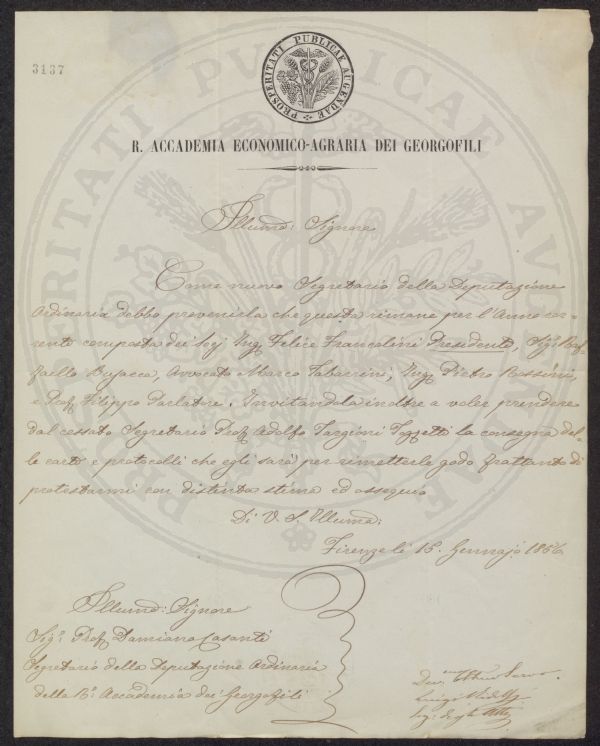 3137
PROSPERITATI PUBLICAE AUGENDAE
R. ACCADEMIA ECONOMICO-AGRARIA DEI GEORGOFILI
Illumo: Signore
Come nuovo Segretario della Deputazione
Ordinaria debbo prevenirla che questa rimane per l'Anno cor-
rente composta dei Sigi: Ing. Felice Francolini Presidente, Sigr. Raf-
faello Busacca, Avvocato Marco Tabarrini, Ing. Pietro Bossini,
e Prof. Filippo Parlatore. Invitandola inoltre a voler prendere
dal cessato Segretario Prof. Adolfo Targioni Tozzetti la consegna del-
le carte e protocolli che egli sarà per rimetterle godo frattanto di
protestarmi con distinta stima ed ossequio
Di V. S. Illuma:
Firenze li 15. Gennajo 1856
Illumo: Signore
Sigr. Prof. Damiano Casanti
Segretario della Deputazione Ordinaria
della Ra. Accademia dei Georgofili
Servo
Luigi
Seg. degli Atti